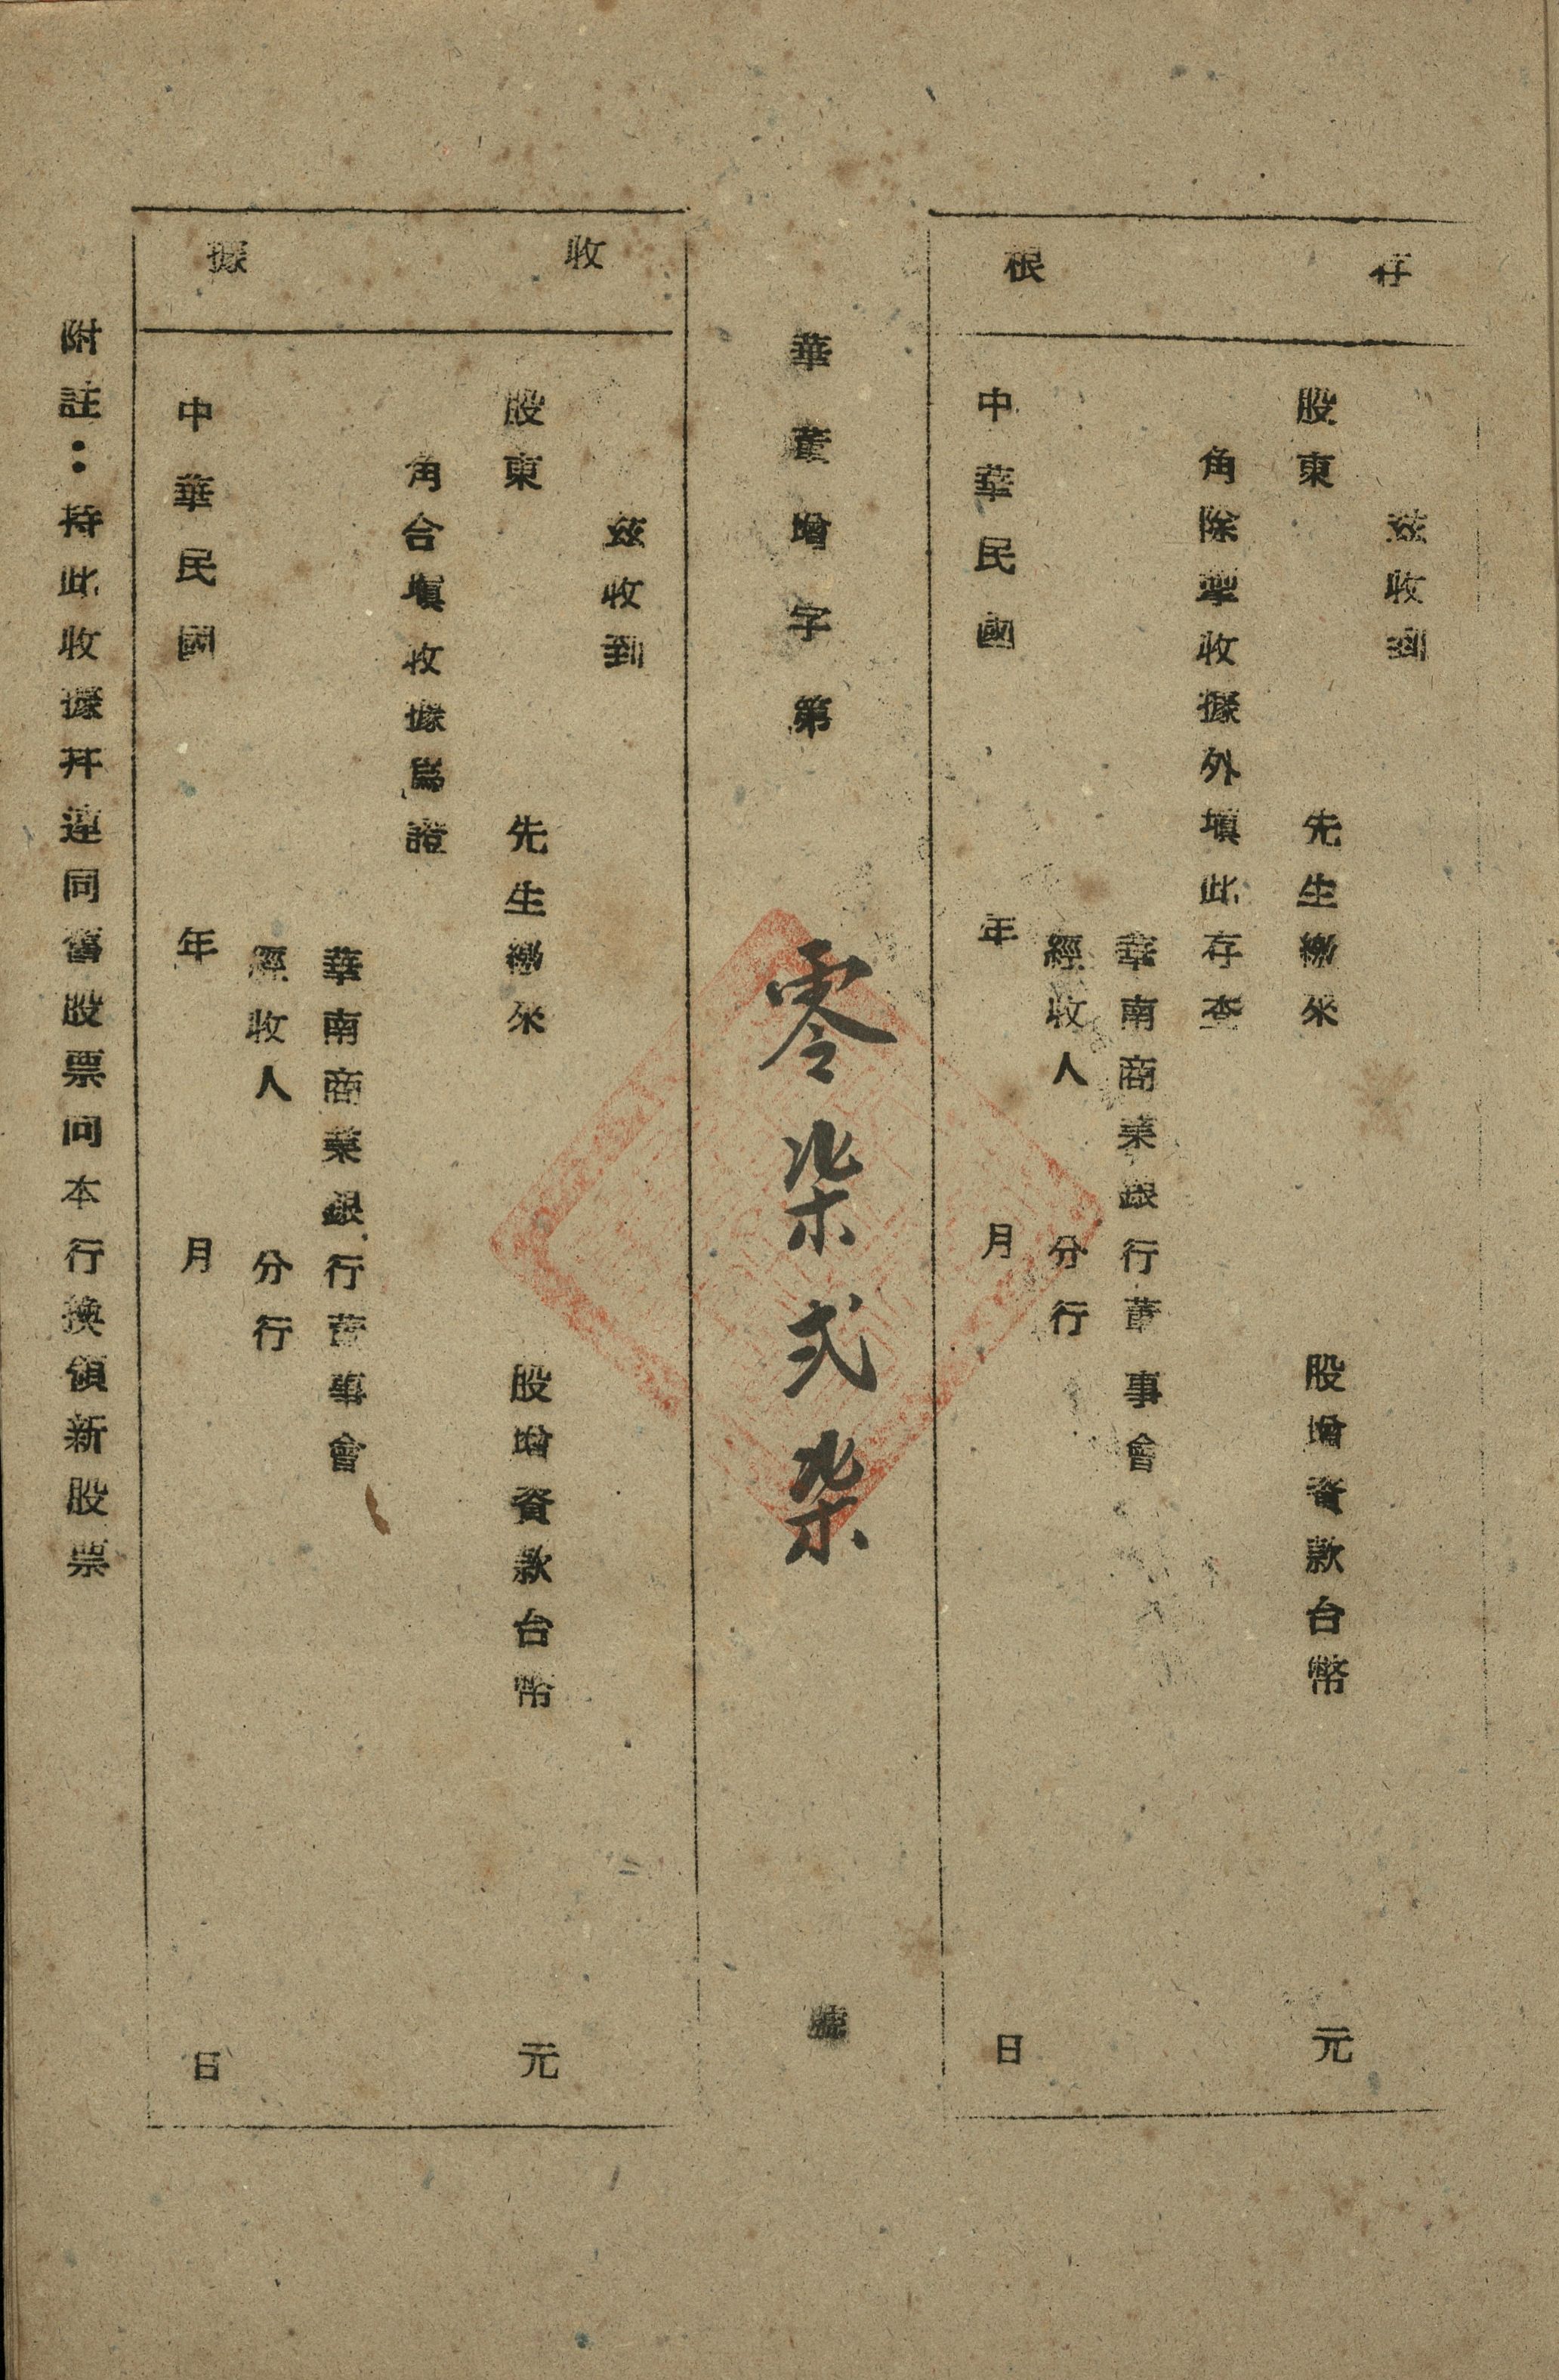 存根
茲收到
股東　先生繳來　股增資款台幣　元
角除掣收據外填此存查
華南商業銀行董事會
經收人　分行
中華民國　年　月　日
華董增字第零柒弍柒號
收據
茲收到
股東　先生繳來　股增資款台幣　元
角合填收據爲證
華南商業銀行董事會
經收人　分行
中華民國　年　月　日
附註：持此收據幷連同舊股票向本行換領新股票